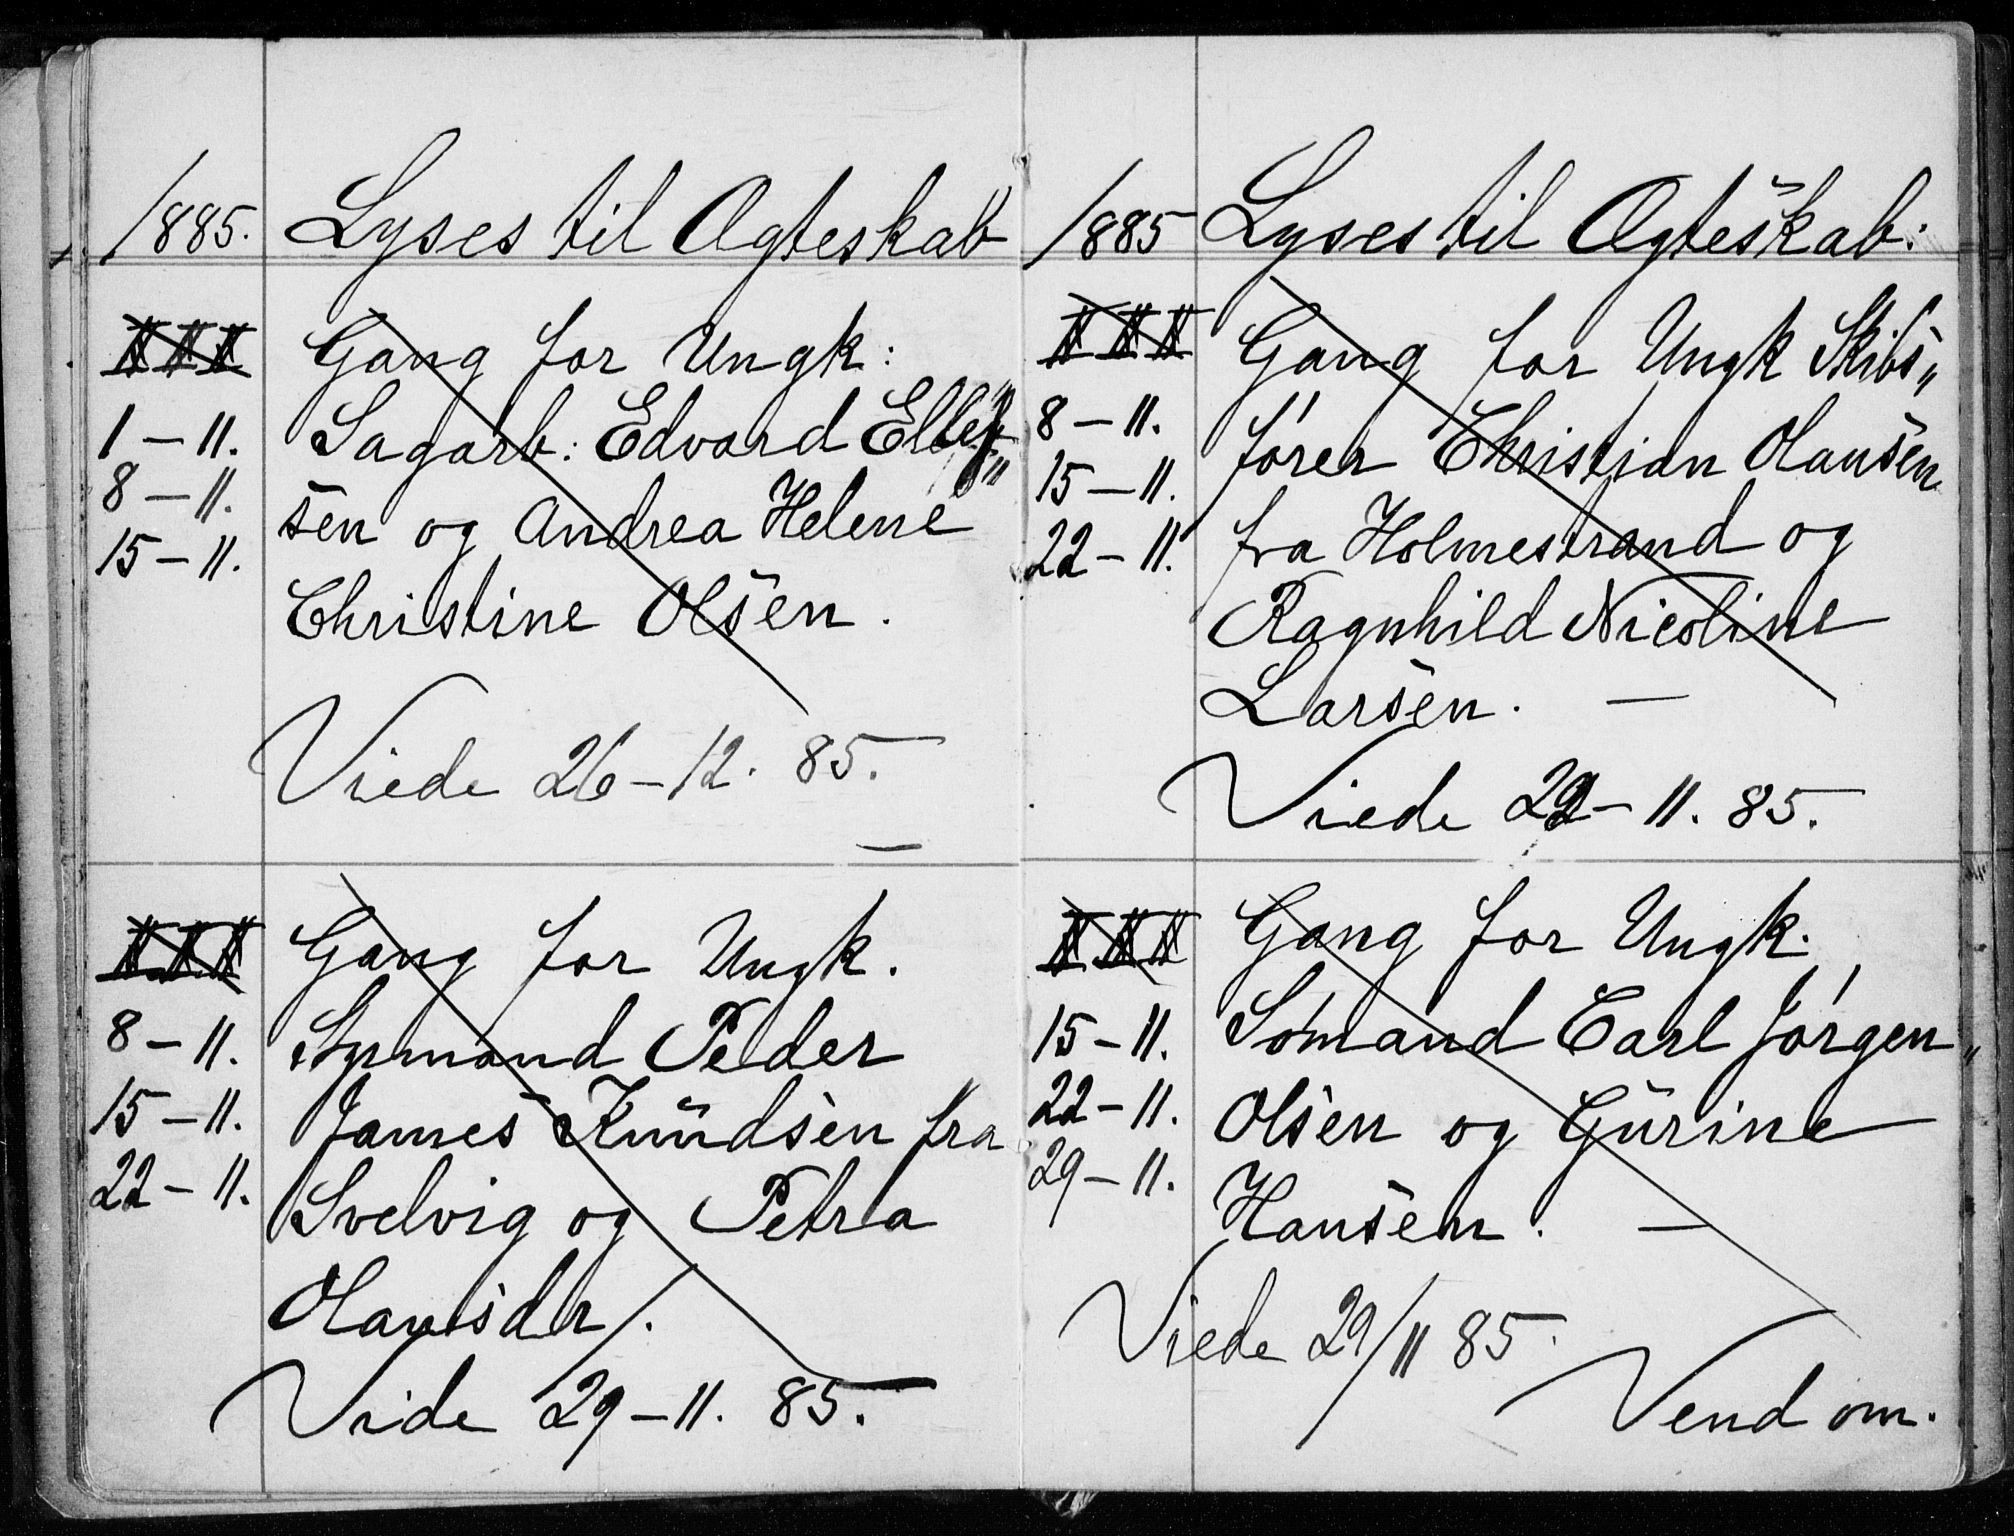 1885. Lyses til Ægteskab
I II III Gang for Ungk:
1 – 11. Sagarb: Edvard Ellef„
8 – 11. sen og Andrea Helene
15 – 11. Christine Olsen.
Viede 26 – 12. 85.
I II III Gang for Ungk.
8 – 11. Styrmand Peder
15 – 11. James Knudsen fra
22 – 11. Svelvig og Petra
Hansdr.
Vide 29 – 11. 85.
1885 Lyses til Ægteskab:
I II III Gang for Ungk Skibs„
8 – 11. fører Christian Hansen
15 – 11. fra Holmestrand og
22 – 11. Ragnhild Nicoline
Larsen. –
Viede 22 – 11. 85.
I II III Gang for Ungk.
15 – 11. Sømand Carl Jørgen„
22 – 11. Olsen og Gurine
29 – 11. Hansen. –
Viede 29/11 85.
Vend om.